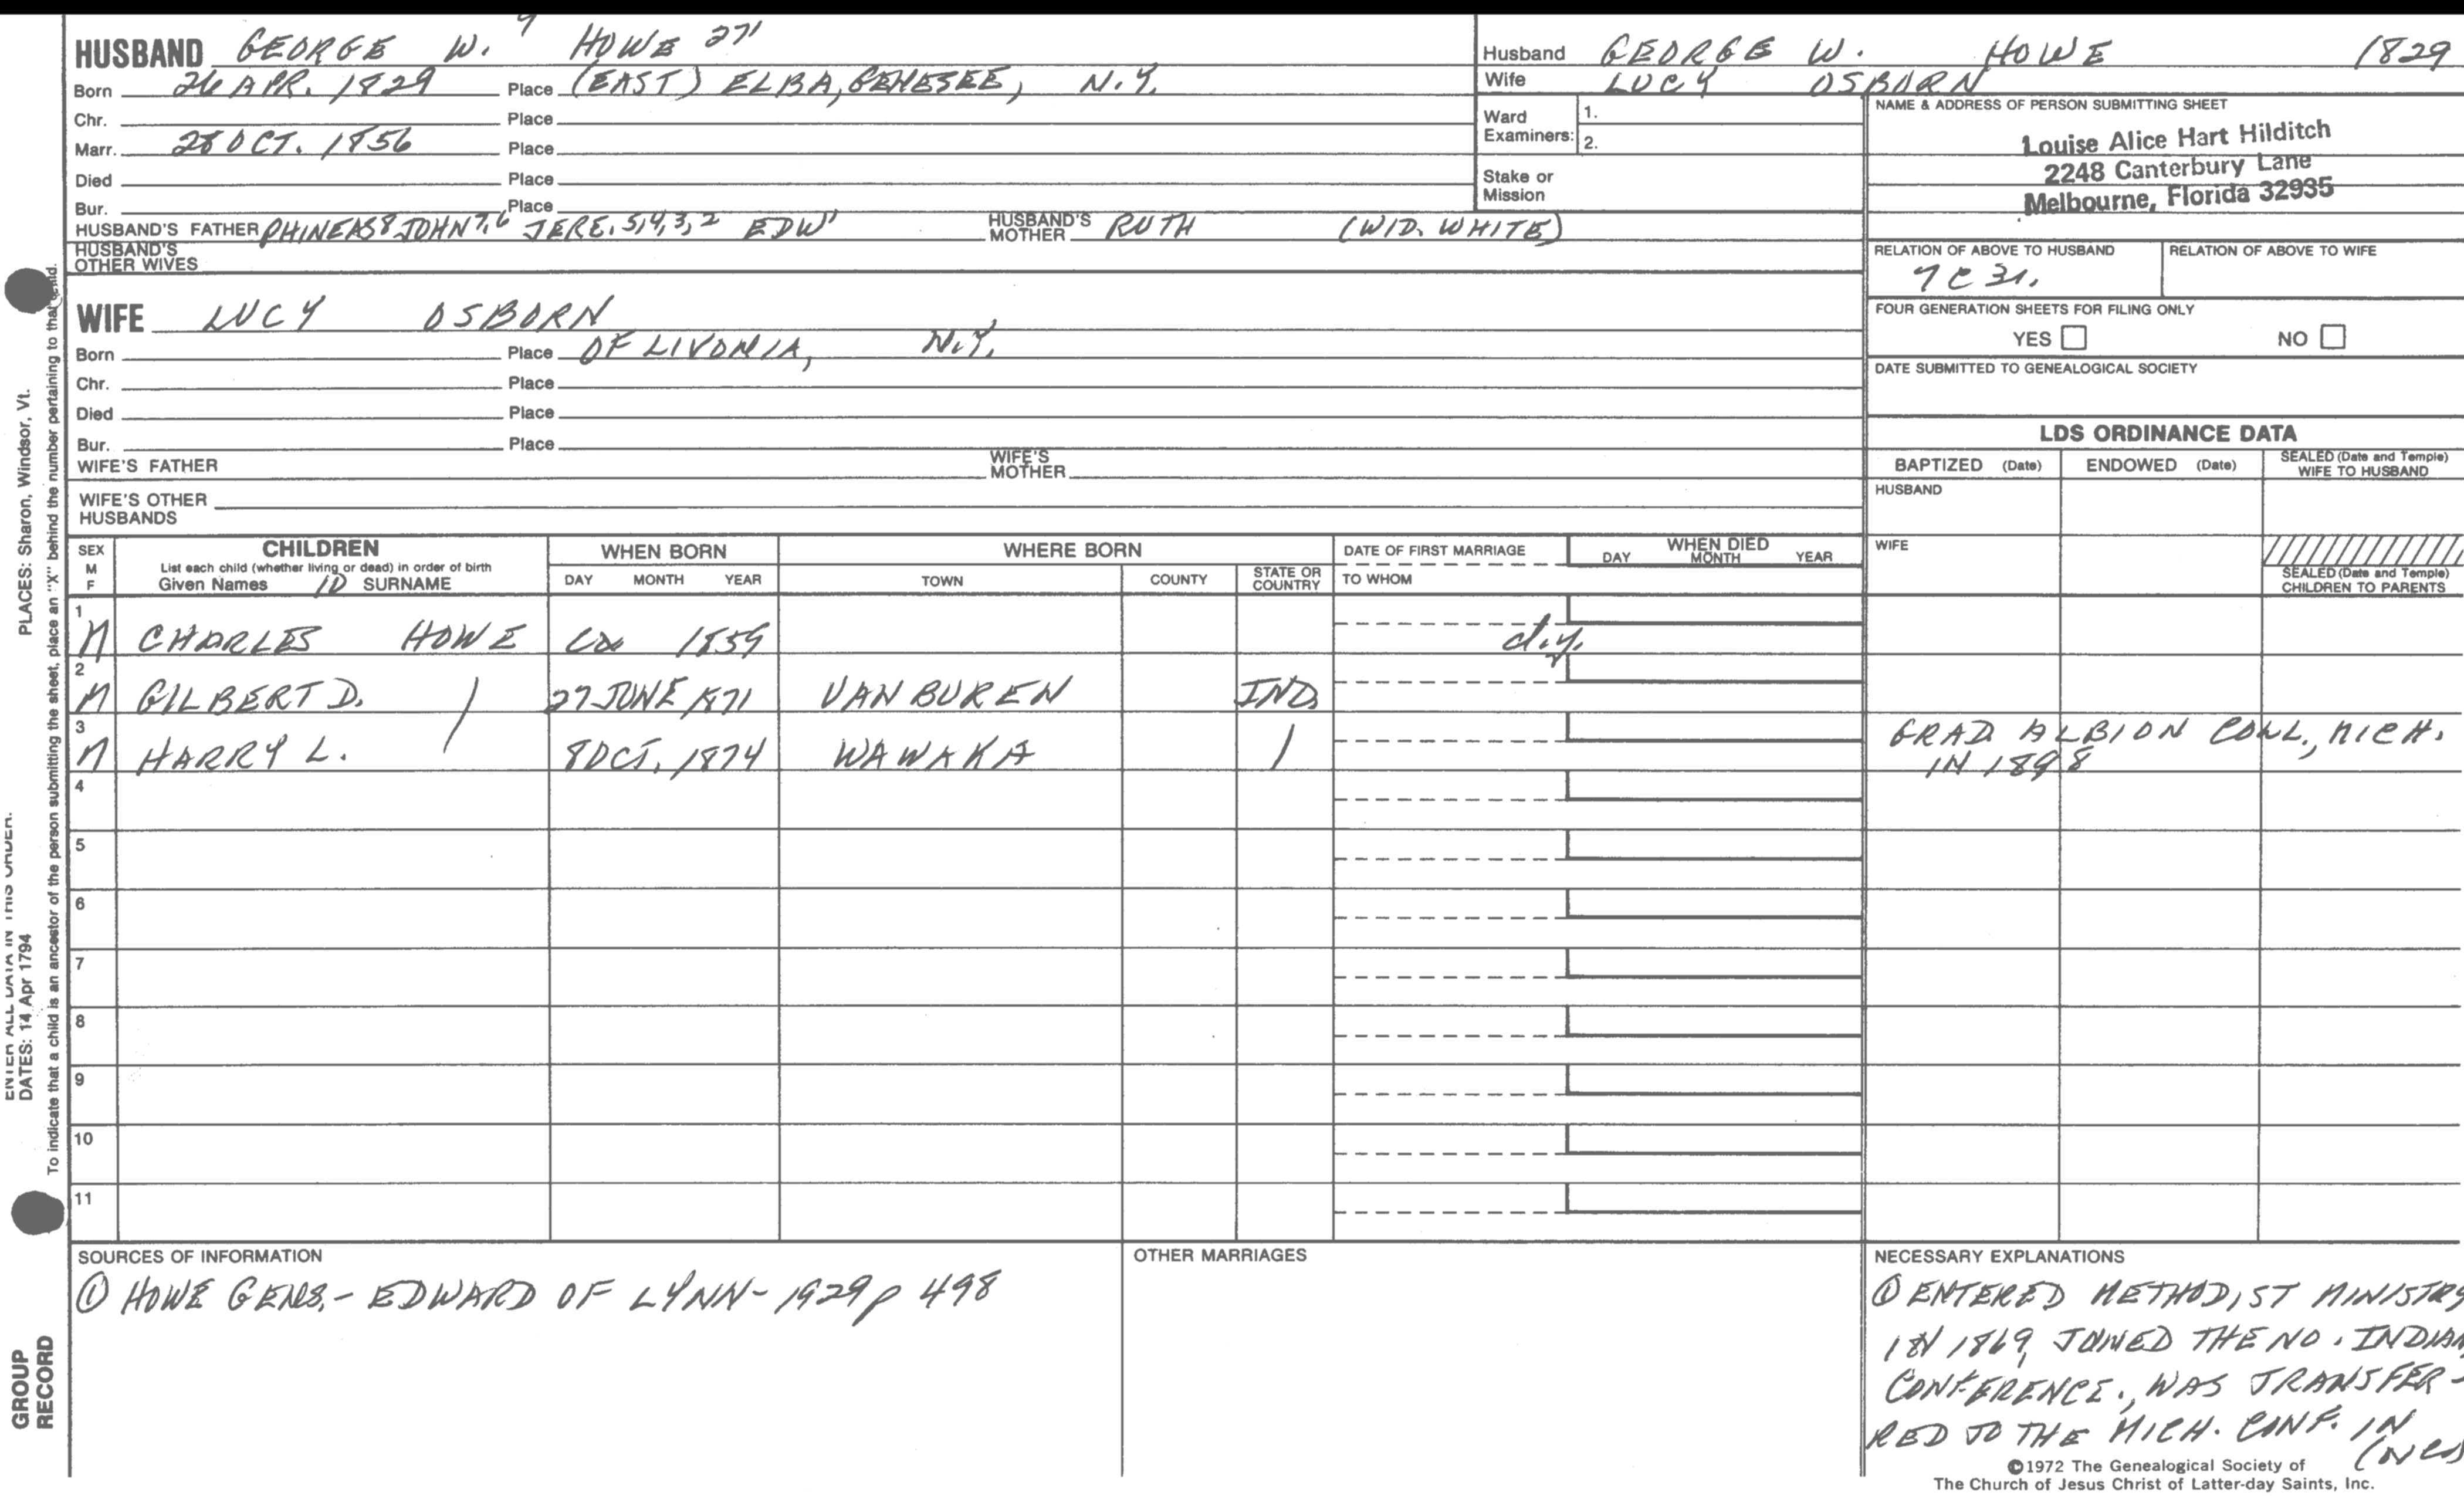 9
HUSBAND GEORGE W. HOWE 271
Born 26 APR. 1829 Place (EAST) ELBA, GENESEE, N.Y.
Chr. Place
Marr. 28 OCT. 1856 Place
Died Place
Bur. Place
HUSBAND'S FATHER PHINEAS 8 JOHN 7,6 JERE. 5,4,3,2 EDW 1 HUSBAND'S MOTHER RUTH (WID. WHITE)
HUSBAND'S OTHER WIVES
WIFE LUCY OSBORN
Born Place OF LIVONIA, N.Y.
Chr. Place
Died Place
Bur. Place
WIFE'S FATHER WIFE'S MOTHER
WIFE'S OTHER HUSBANDS
Husband GEORGE W. HOWE 1829
Wife LUCY OSBORN
Ward Examiners: 1.
2.
Stake or Mission
NAME & ADDRESS OF PERSON SUBMITTING SHEET
Louise Alice Hart Hilditch
2248 Canterbury Lane
Melbourne, Florida 32935
RELATION OF ABOVE TO HUSBAND RELATION OF ABOVE TO WIFE
7 C 3r.
FOUR GENERATION SHEETS FOR FILING ONLY
YES NO
DATE SUBMITTED TO GENEALOGICAL SOCIETY
LDS ORDINANCE DATA
BAPTIZED (Date) ENDOWED (Date) SEALED (Date and Temple) WIFE TO HUSBAND
HUSBAND
WIFE
SEALED (Date and Temple) CHILDREN TO PARENTS
SEX M F CHILDREN WHEN BORN WHERE BORN DATE OF FIRST MARRIAGE WHEN DIED
List each child (whether living or dead) in order of birth
Given Names SURNAME DAY MONTH YEAR TOWN COUNTY STATE OR COUNTRY TO WHOM DAY MONTH YEAR
1 M CHARLES HOWE Ca 1859 d.y.
2 M GILBERT D. 27 JUNE 1871 VAN BUREN IND.
3 M HARRY L. 8 OCT. 1874 WAWAKA GRAD ALBION COLL., MICH.
IN 1898
4
5
6
7
8
9
10
11
SOURCES OF INFORMATION
① HOWE GENS. - EDWARD OF LYNN - 1929 p 498
OTHER MARRIAGES
NECESSARY EXPLANATIONS
① ENTERED METHODIST MINISTRY
IN 1869, JOINED THE NO. INDIAN
CONFERENCE., WAS TRANSFER-
RED TO THE MICH. CONF. IN
©1972 The Genealogical Society of
The Church of Jesus Christ of Latter-day Saints, Inc.
PLACES: Sharon, Windsor, Vt.
ENTER ALL DATA IN THIS ORDER:
DATES: 14 Apr 1794
To indicate that a child is an ancestor of the person submitting the sheet, place an "X" behind the number pertaining to that child.
GROUP
RECORD